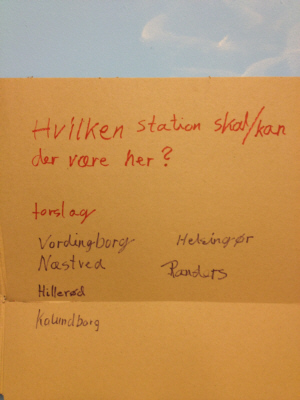 Hvilken station skal/kan
der være her?
forslag
Vordingborg
Næstved
Hillerød
Kalundborg
Helsingør
Randers